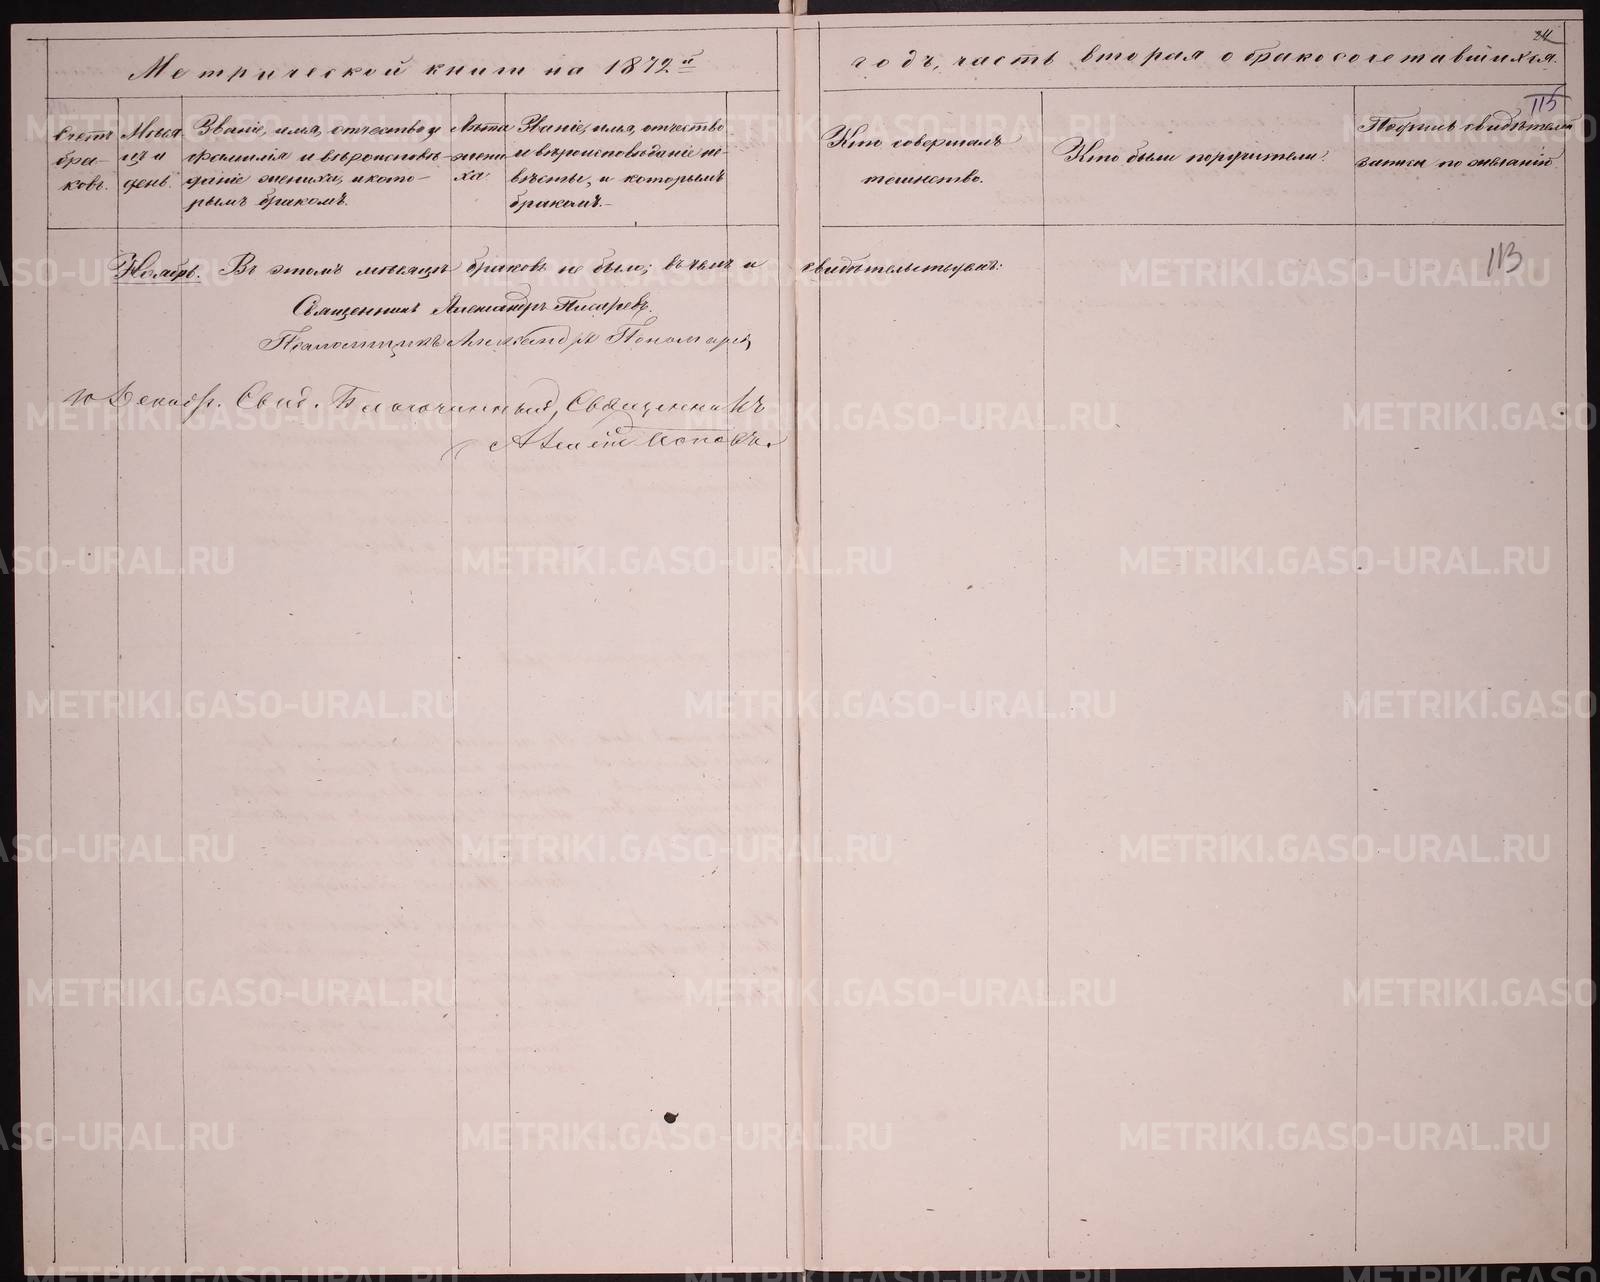 Метрической книги на 1872й
годъ, часть вторая о бракосочетавшихся.
24
115
Счетъ
бра-
ковъ.
Мѣся
цъ и
день.
Званіе, имя, отчество и
фамилія и вѣроисповѣ-
даніе жениха, и кото-
рымъ бракомъ.
Лѣта
жени
ха.
Званіе, имя, отчество
и вѣроисповѣданіе не-
вѣсты, и которымъ
бракомъ.
Кто совершалъ
таинство.
Кто были поручители.
Подпись свидѣтелей
записи по желанію
113
Ноябрь. Въ этомъ мѣсяцѣ браковъ не было; въ чемъ и свидѣтельствуемъ:
Священникъ Александръ Писаревъ.
Псаломщикъ Александръ Пономарев
10 Декабр. Свид. Благочинный, Священникъ
Алексій Поповъ.
METRIKI.GASO-URAL.RU